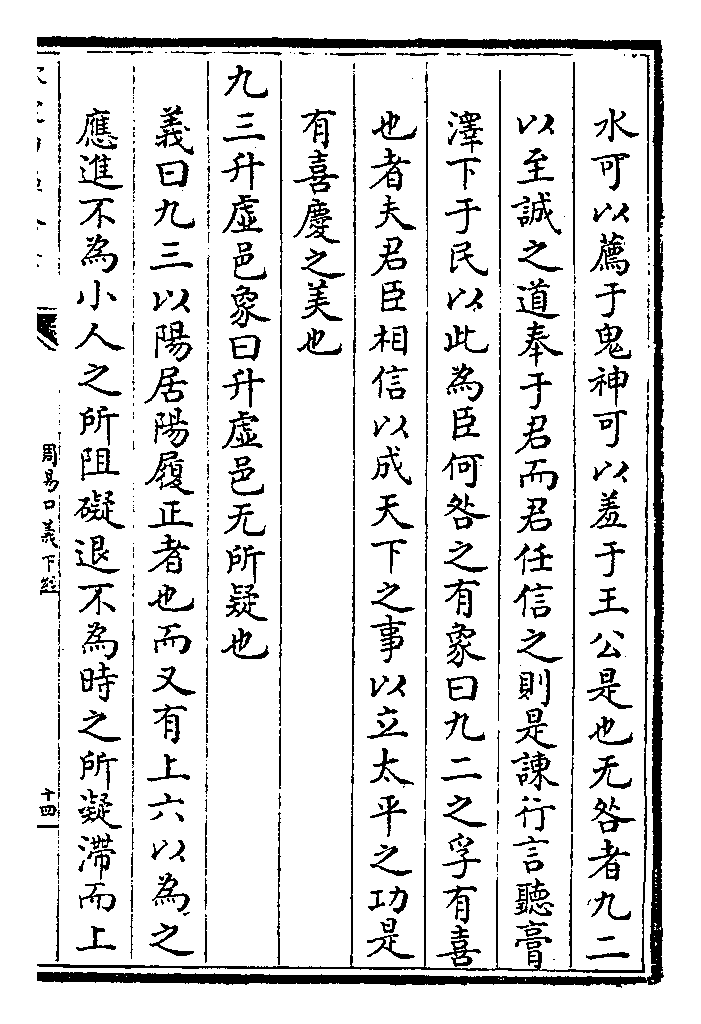 水可以薦于鬼神可以羞于王公是也无咎者九二
以至誠之道奉于君而君任信之則是諫行言聽膏
澤下于民以此為臣何咎之有象曰九二之孚有喜
也者夫君臣相信以成天下之事以立太平之功是
有喜慶之美也
九三升虛邑象曰升虛邑无所疑也
義曰九三以陽居陽履正者也而又有上六以為之
應進不為小人之所阻礙退不為時之所凝滯而上
周易口義下經
十四